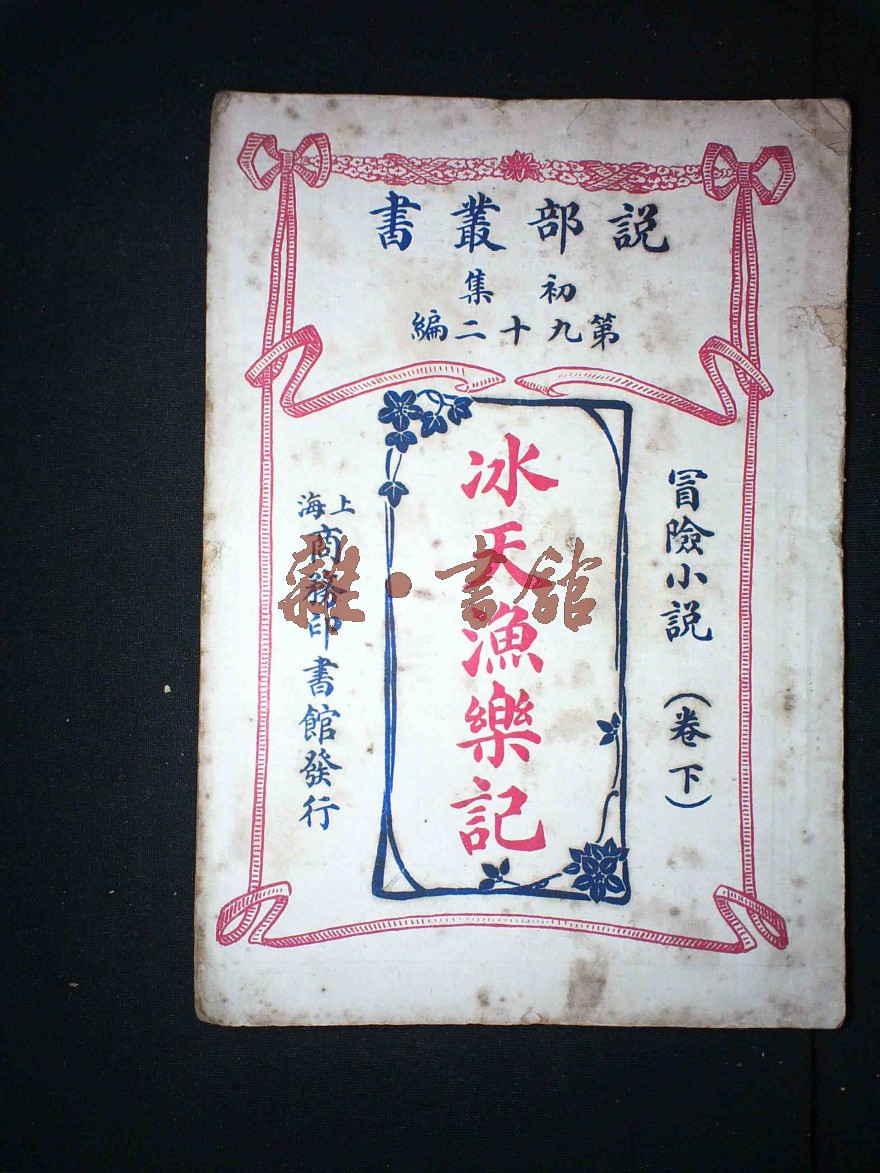 説部叢書
初集
第九十二編
冒險小説（卷下）
冰天漁樂記
上海
商務印書館發行
雜·書館